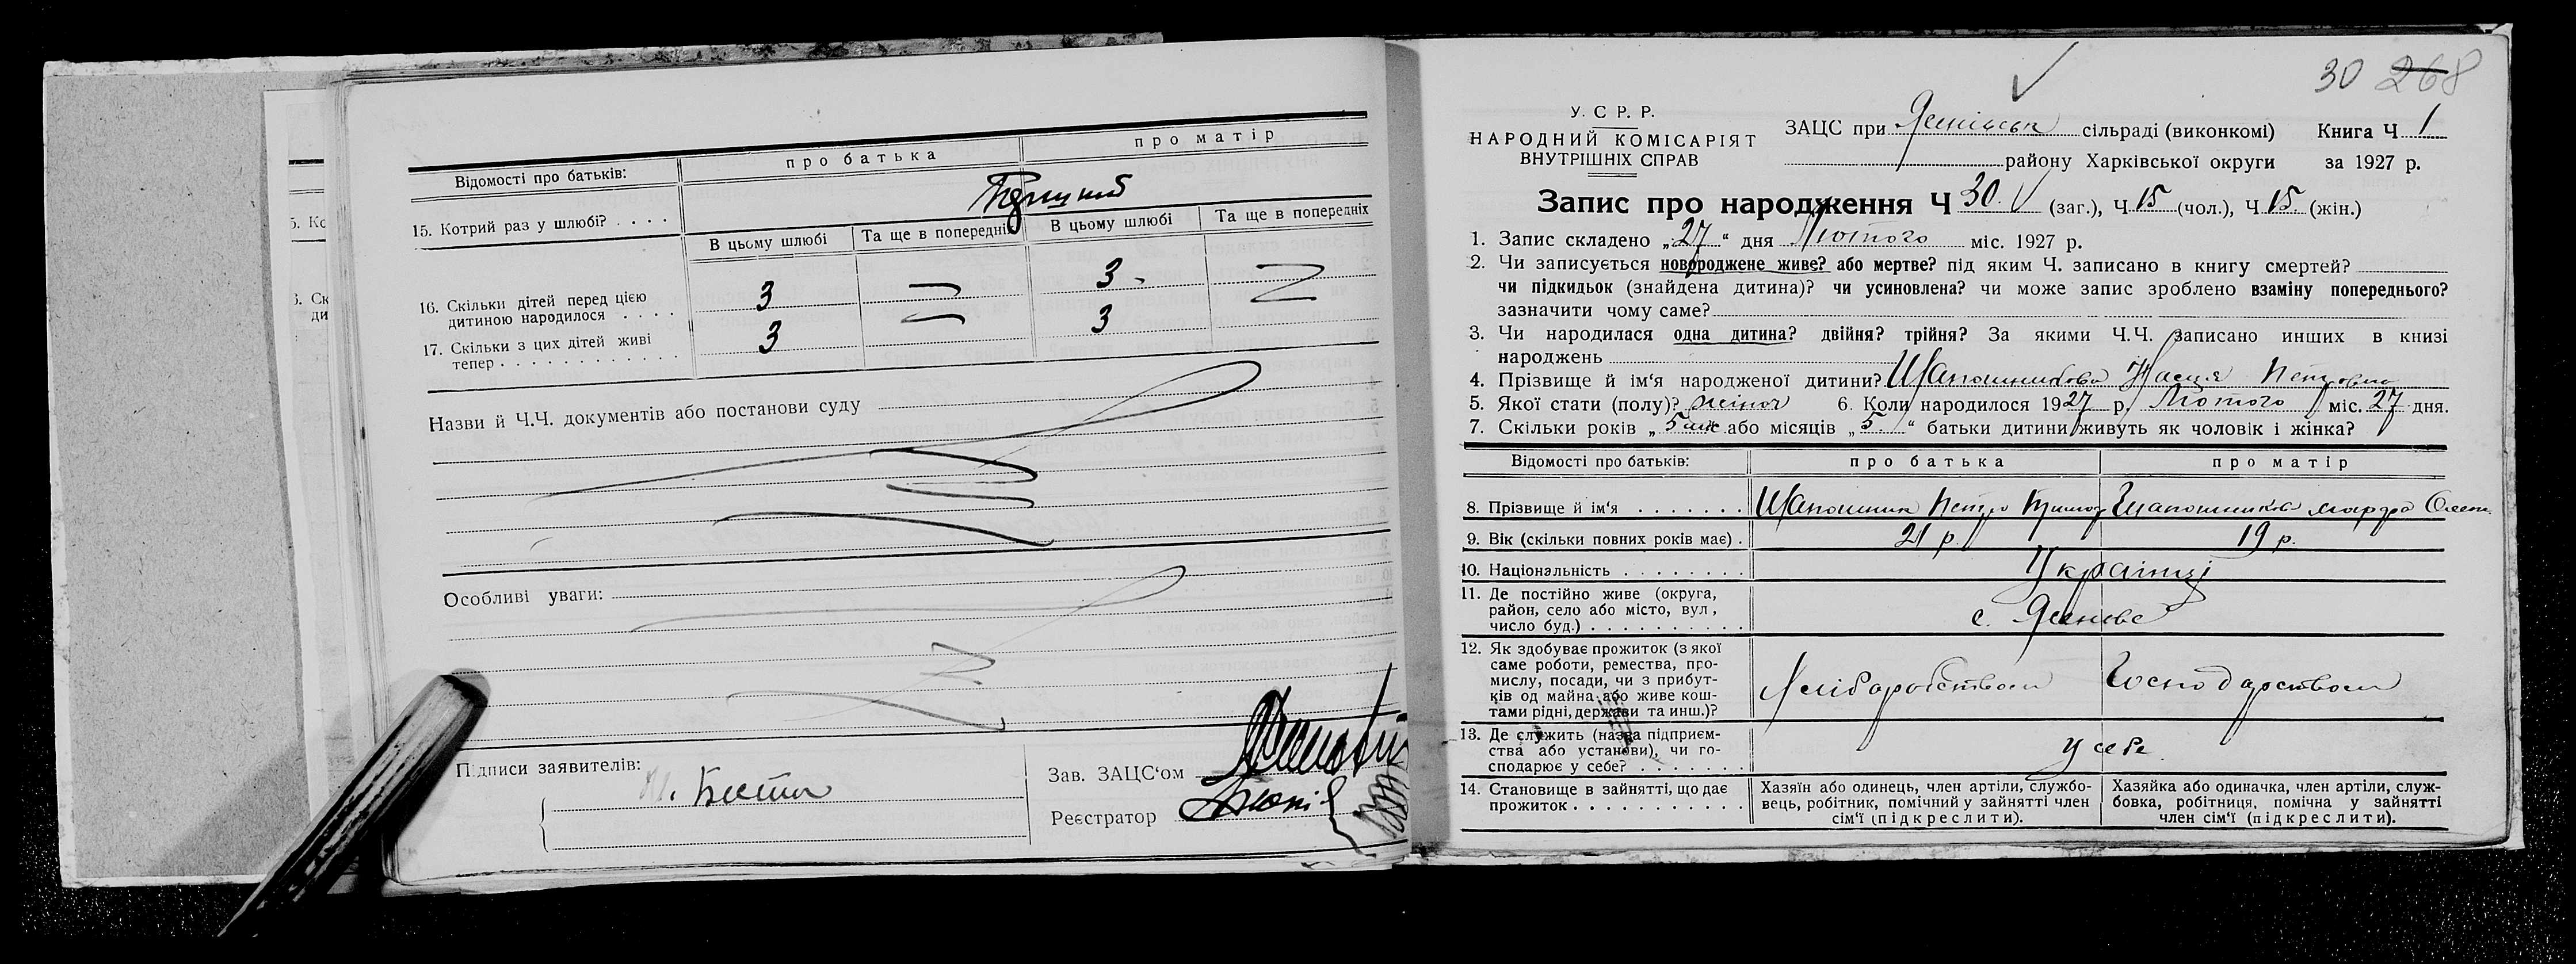 Відомості про батьків:
про батька
про матір
15. Котрий раз у шлюбі? . . . .
В цьому шлюбі
Та ще в попередні
В цьому шлюбі
Та ще в попередніх
16. Скільки дітей перед цією
дитиною народилося . . . .
3
3
17. Скільки з цих дітей живі
тепер . . . . . . . . . . . . .
3
3
Назви й Ч.Ч. документів або постанови суду
Особливі уваги:
Підписи заявителів:
Зав. ЗАЦС‘ом
Реєстратор
30 268
У. С Р. Р.
НАРОДНИЙ КОМІСАРІЯТ
ВНУТРІШНІХ СПРАВ
ЗАЦС при сільраді (виконкомі) Книга Ч 1
району Харківської округи за 1927 р.
Запис про народження Ч 30. (заг.), Ч 15 (чол.), Ч 15. (жін.)
1. Запис складено „27“ дня Лютого міс. 1927 р.
2. Чи записується новороджене живе? або мертве? під яким Ч. записано в книгу смертей?
чи підкидьок (знайдена дитина)? чи усиновлена? чи може запис зроблено взаміну попереднього?
зазначити чому саме?
3. Чи народилася одна дитина? двійня? трійня? За якими Ч.Ч. записано инших в книзі
народжень
4. Прізвище й ім‘я народженої дитини? Шапошникова Настя Петровна
5. Якої стати (полу)? жіноч 6. Коли народилося 1927 р. Лютого міс. 27 дня.
7. Скільки років „5“ або місяців „5.“ батьки дитини живуть як чоловік і жінка?
Відомості про батьків:
про батька
про матір
8. Прізвище й ім‘я . . . . . . .
Шапошник Петро
Шапошникова Марфа
9. Вік (скільки повних років має) .
21 р.
19 р.
10. Національність . . . . . . . .
Українці
11. Де постійно живе (округа,
район, село або місто, вул,
число буд.) . . . . . . . . . .
с.
12. Як здобуває прожиток (з якої
саме роботи, ремества, про-
мислу, посади, чи з прибут-
ків од майна або живе кош-
тами рідні, держави та инш.)?
Хліборобством
Господарством
13. Де служить (назва підприєм-
ства або установи), чи го-
сподарює у себе? . . . . . . .
у себе
14. Становище в зайнятті, що дає
прожиток . . . . . . . . . . . .
Хазяїн або одинець, член артіли, службо-
вець, робітник, помічний у зайнятті член
сім‘ї (підкреслити).
Хазяйка або одиначка, член артіли, служ-
бовка, робітниця, помічна у зайнятті
член сім‘ї (підкреслити).